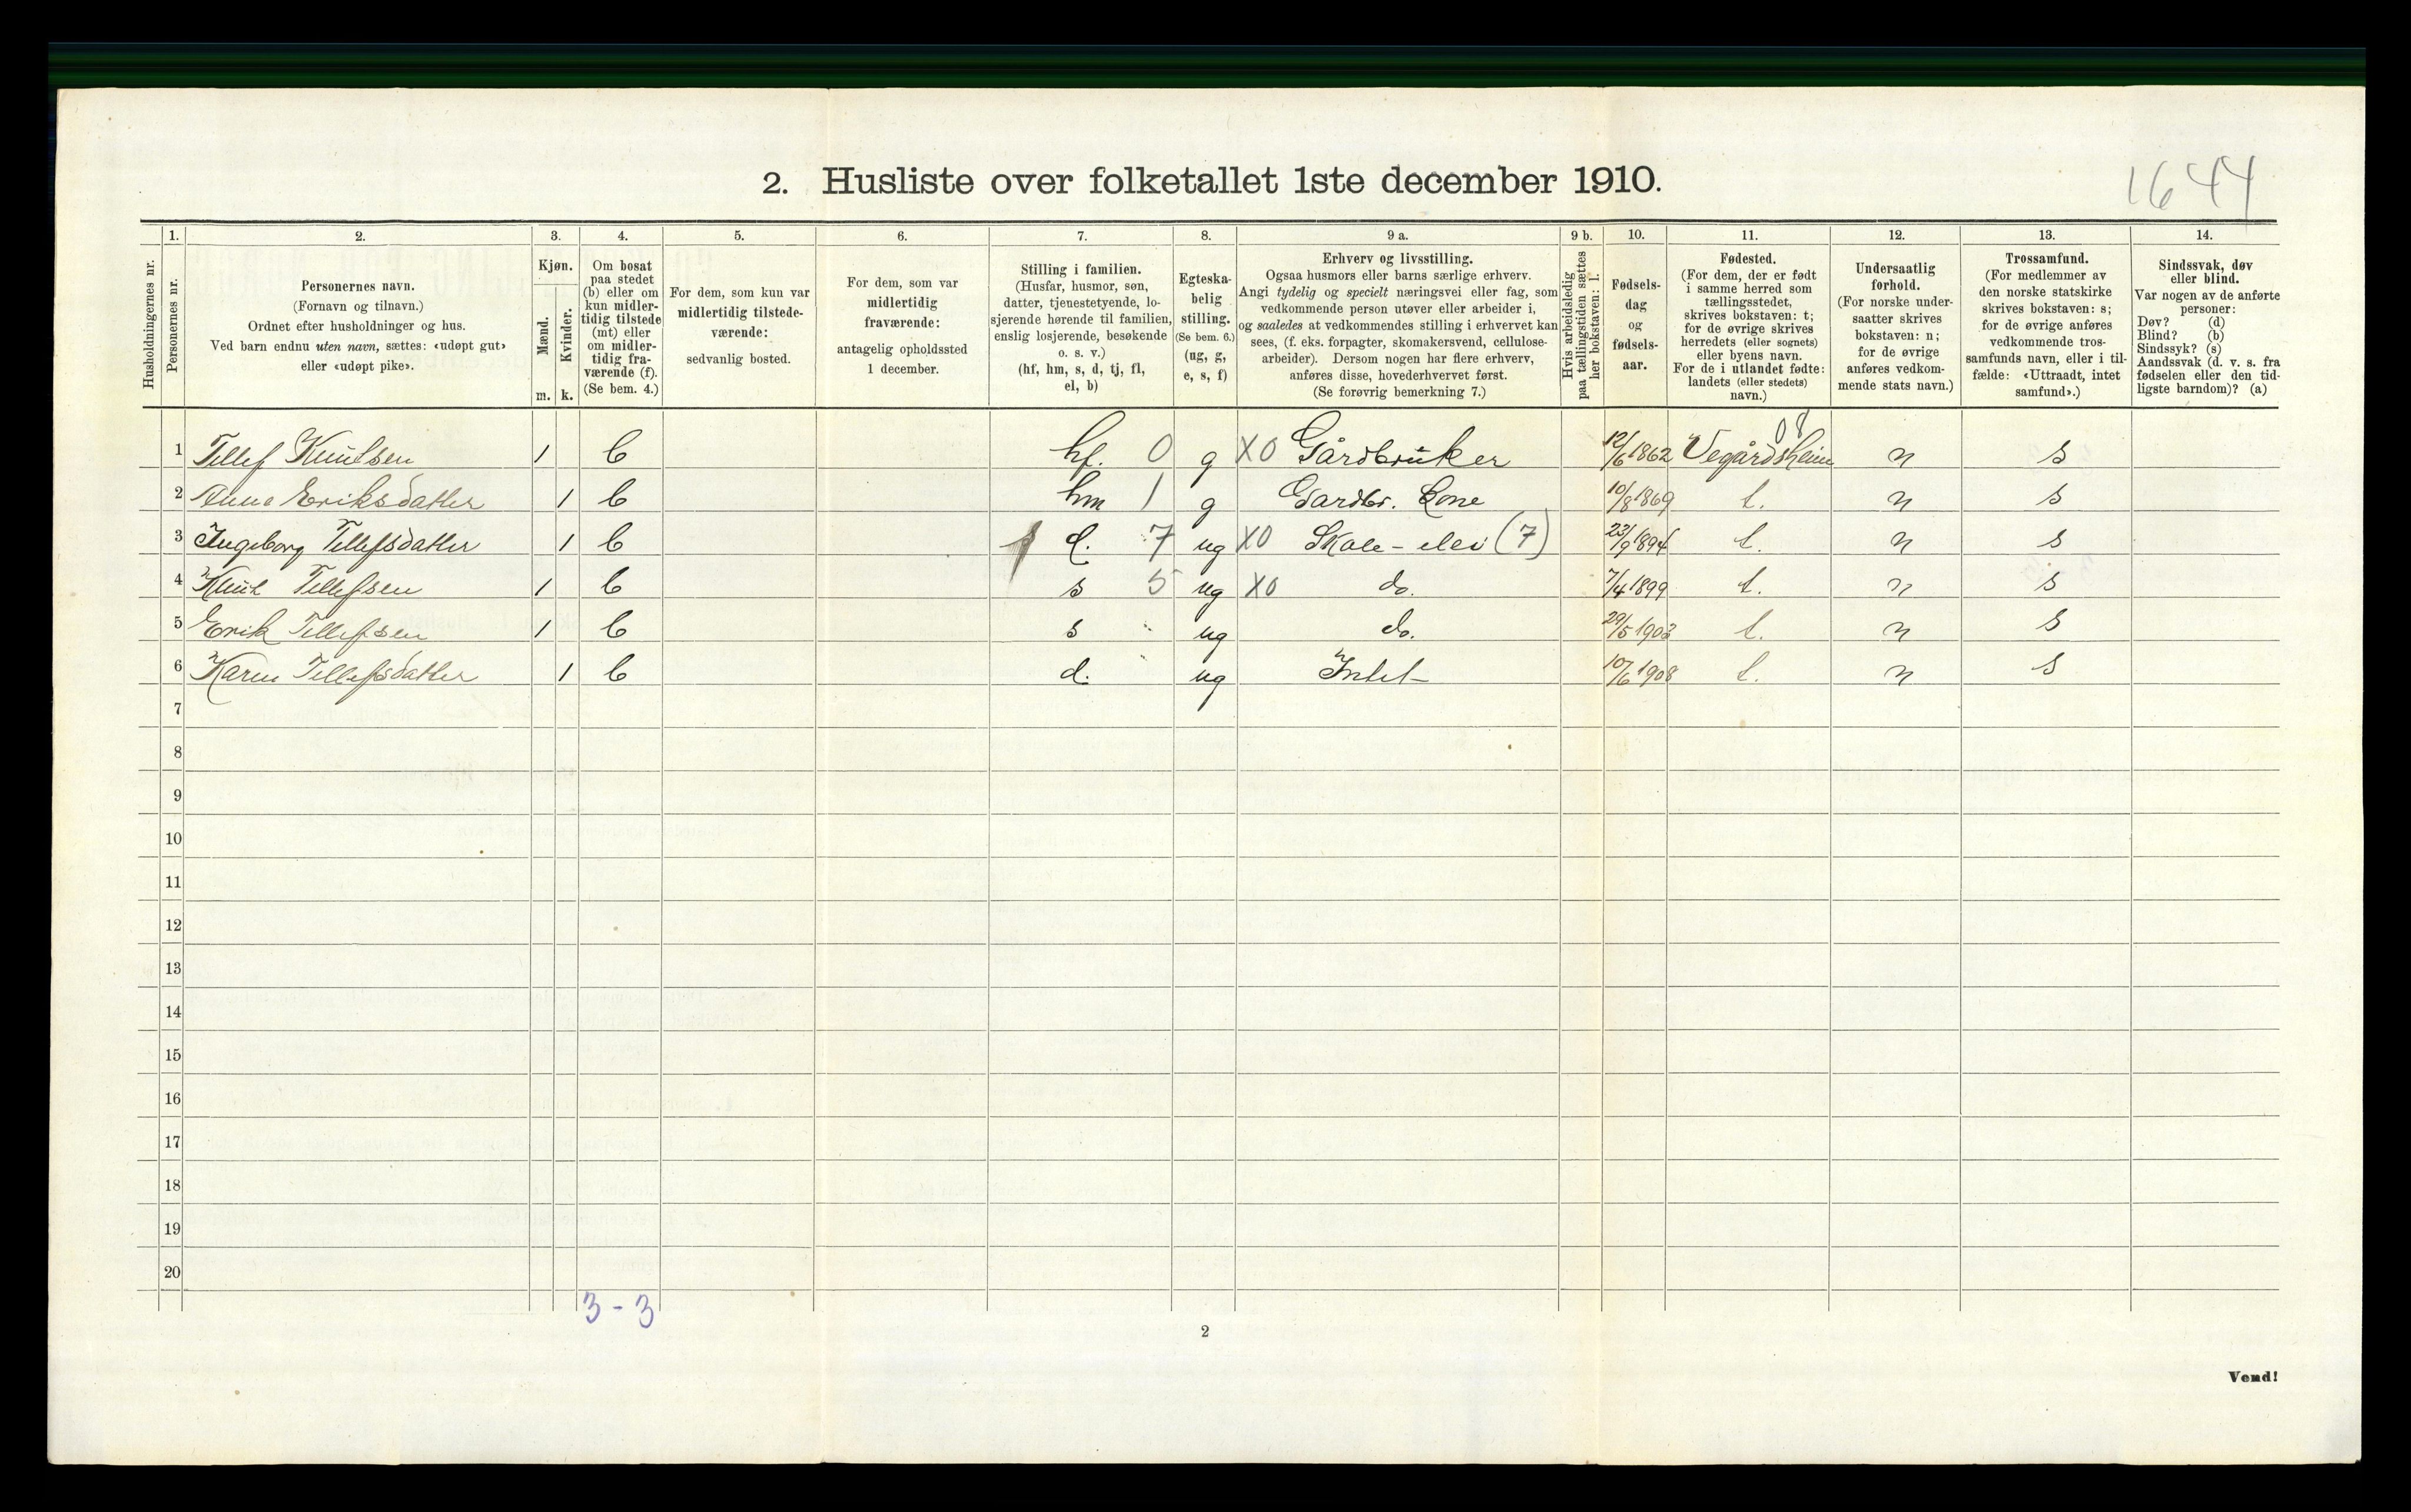 2. Husliste over folketallet 1ste december 1910.
1644
1. 2. 3. 4. 5. 6. 7. 8. 9 a. 9 b. 10. 11. 12. 13. 14.
Husholdningernes nr.
Personernes nr.
Personernes navn.
(Fornavn og tilnavn.)
Ordnet efter husholdninger og hus.
Ved barn endnu uten navn, sættes: «udøpt gut»
eller «udøpt pike».
Kjøn.
Mænd.
Kvinder.
m. k.
Om bosat
paa stedet
(b) eller om
kun midler-
tidig tilstede
(mt) eller
om midler-
tidig fra-
værende (f).
(Se bem. 4.)
For dem, som kun var
midlertidig tilstede-
værende:
sedvanlig bosted.
For dem, som var
midlertidig
fraværende:
antagelig opholdssted
1 december.
Stilling i familien.
(Husfar, husmor, søn,
datter, tjenestetyende, lo-
sjerende hørende til familien,
enslig losjerende, besøkende
o. s. v.)
(hf, hm, s, d, tj, fl,
el, b)
Egteska-
belig
stilling.
(Se bem. 6.)
(ug, g,
e, s, f)
Erhverv og livsstilling.
Ogsaa husmors eller barns særlige erhverv.
Angi tydelig og specielt næringsvei eller fag, som
vedkommende person utøver eller arbeider i,
og saaledes at vedkommendes stilling i erhvervet kan
sees, (f. eks. forpagter, skomakersvend, cellulose-
arbeider). Dersom nogen har flere erhverv,
anføres disse, hovederhvervet først.
(Se forøvrig bemerkning 7.)
Hvis arbeidsledig
paa tællingstiden sættes
her bokstaven: l.
Fødsels-
dag
og
fødsels-
aar.
Fødested.
(For dem, der er født
i samme herred som
tællingsstedet,
skrives bokstaven: t;
for de øvrige skrives
herredets (eller sognets)
eller byens navn.
For de i utlandet fødte:
landets (eller stedets)
navn.)
Undersaatlig
forhold.
(For norske under-
saatter skrives
bokstaven: n;
for de øvrige
anføres vedkom-
mende stats navn.)
Trossamfund.
(For medlemmer av
den norske statskirke
skrives bokstaven: s;
for de øvrige anføres
vedkommende tros-
samfunds navn, eller i til-
fælde: «Uttraadt, intet
samfund».)
Sindssvak, døv
eller blind.
Var nogen av de anførte
personer:
Døv? (d)
Blind? (b)
Sindssyk? (s)
Aandssvak (d. v. s. fra
fødselen eller den tid-
ligste barndom)? (a)
08
1 Tellef Knutsen 1 b hf. 0 g X0 Gårdbruker 12/6 1862 Vegårdsheim n s
2 Anne Eriksdatter 1 b hm 1 g Gardbr. Kone 10/8 1869 t. n s
3 Ingeborg Tellefsdatter 1 b d. 7 ug X0 Skole-elev (7) 23/9 1894 t. n s
4 Knut Tellefsen 1 b s 5 ug X0 do. 7/4 1899 t. n s
5 Erik Tellefsen 1 b s ug do. 29/5 1903 t. n s
6 Karen Tellefsdatter 1 b d. ug Intet 10/6 1908 t. n s
7
8
9
10
11
12
13
14
15
16
17
18
19
20
3 - 3
2
Vend!